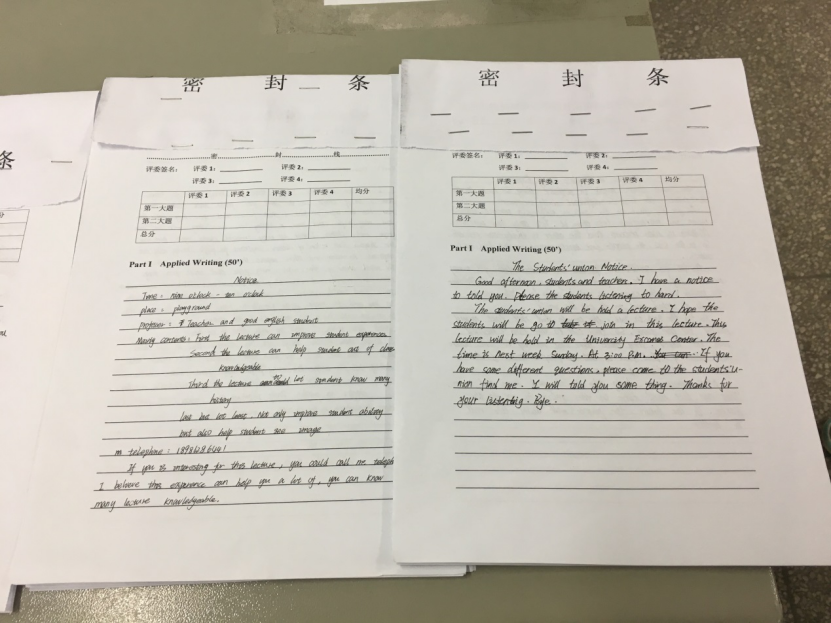 条
密 封 条
密 封 线
评委签名： 评委 1： 评委 2：
评委 3： 评委 4：
评委 1 评委 2 评委 3 评委 4 均分
第一大题
第二大题
总分
Part I Applied Writing (50')
Notice
Time: nine o'clock - ten o'clock
place: playground
professor: Teacher and good english student
Manly contents: First the lecture can improve student experience
Second the lecture can help student out of class
knowledgeable
Third the lecture let student know many
history
last but not least. Not only improve student ability
but also help student see image
telephone:
If you is interesting for this lecture, you could call me teleph
I believe this experience can help you a lot of, you can know
many lecture knowledgeable.
密 封 条
评委签名： 评委 1： 评委 2：
评委 3： 评委 4：
评委 1 评委 2 评委 3 评委 4 均分
第一大题
第二大题
总分
Part I Applied Writing (50')
The Students' union Notice.
Good afternoon, students and teachers. I have a notice
to told you. Please the students listening to hard.
The students' union will be hold a lecture. I hope the
students will be go to join in this lecture. This
lecture will be hold in the University Center. The
time is Next week Sunday. At 3:00 P.m. If you
have some different questions, please come to the students' u-
nion find me. I will told you some thing. Thanks for
your listening. Bye.